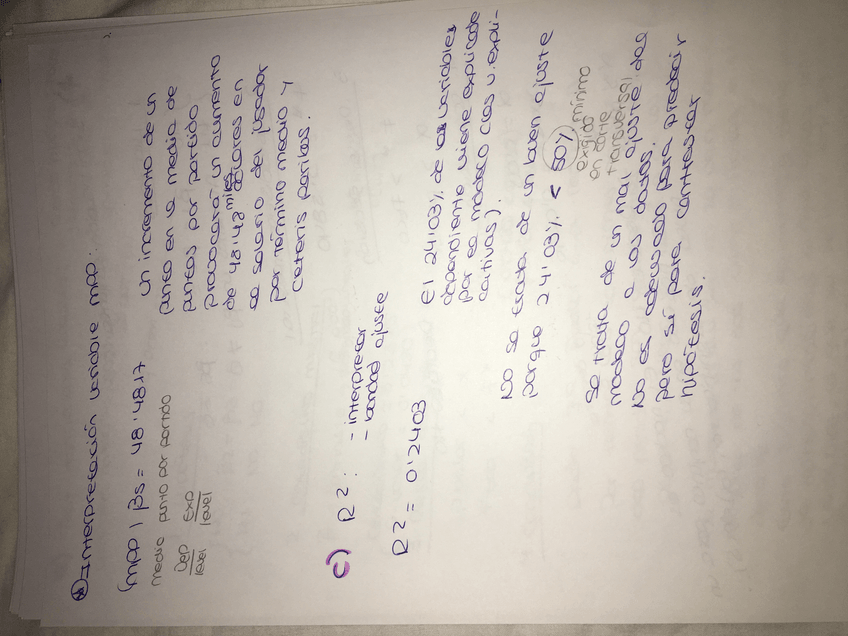 * Interpretación variable mpp:
(mpp) β5 = 48'4817
media punto por partido
Dep Exp
level level
un incremento de un
punto en la media de
puntos por partido
provocará un aumento
de 48'48 miles dólares en
el salario del jugador
por término medio y
ceteris paribus.
c) R²: - interpretar
- bondad ajuste
R² = 0'2403
El 24'03% de la variable
dependiente viene explicada
por el modelo (las v. expli-
cativas).
No se trata de un buen ajuste
porque 24'03% < 50%
mínimo
exigido
en corte
transversal
Se trata de un mal ajuste del
modelo a los datos.
No es adecuado para predecir
pero sí para contrastar
hipótesis.